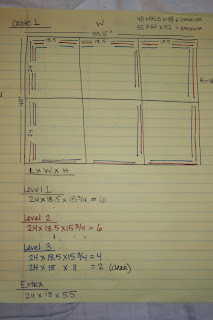 Crate 1
W
55.5"
18.5
18.5
18.5
24
24
48"
L x W x H
Level 1
24 x 18.5 x 15 3/4 = 6
Level 2
24 x 18.5 x 15 3/4 = 6
Level 3
24 x 18.5 x 15 3/4 = 4
24 x 18 x 11 = 2 (clear)
Extra
24 x 18 x 5.5